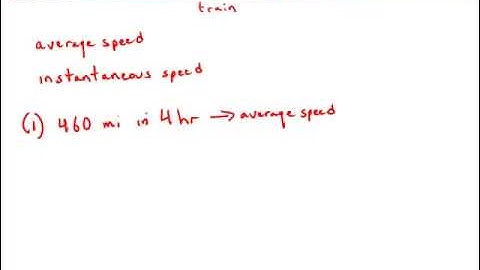 train
average speed
instantaneous speed
(1) 460 mi in 4 hr → average speed